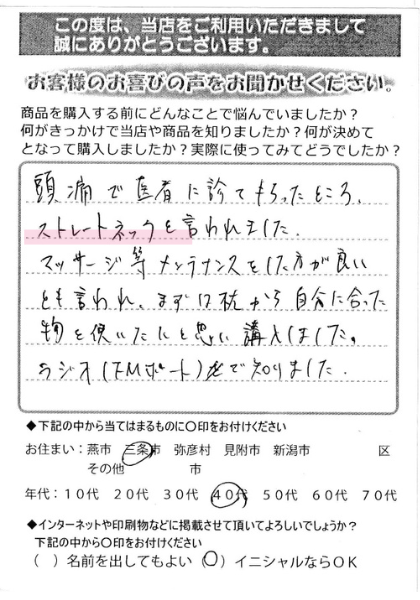 この度は、当店をご利用いただきまして
誠にありがとうございます。
お客様のお喜びの声をお聞かせください。
商品を購入する前にどんなことで悩んでいましたか?
何がきっかけで当店や商品を知りましたか?何が決めて
となって購入しましたか?実際に使ってみてどうでしたか?
頭痛で医者に診てもらったところ、
ストレートネックを言われました。
マッサージ等メンテナンスをした方が良い
とも言われ、まずは枕から自分に合った
物を使いたいと思い購入しました。
ラジオ(FMポート)で知りました.
◆下記の中から当てはまるものに〇印をお付けください
お住まい:燕市 三条市 弥彦村 見附市 新潟市 区
その他 市
年代:10代 20代 30代 40代 50代 60代 70代
◆インターネットや印刷物などに掲載させて頂いてよろしいでしょうか?
下記の中から〇印をお付けください
( )名前を出してもよい (〇)イニシャルならOK